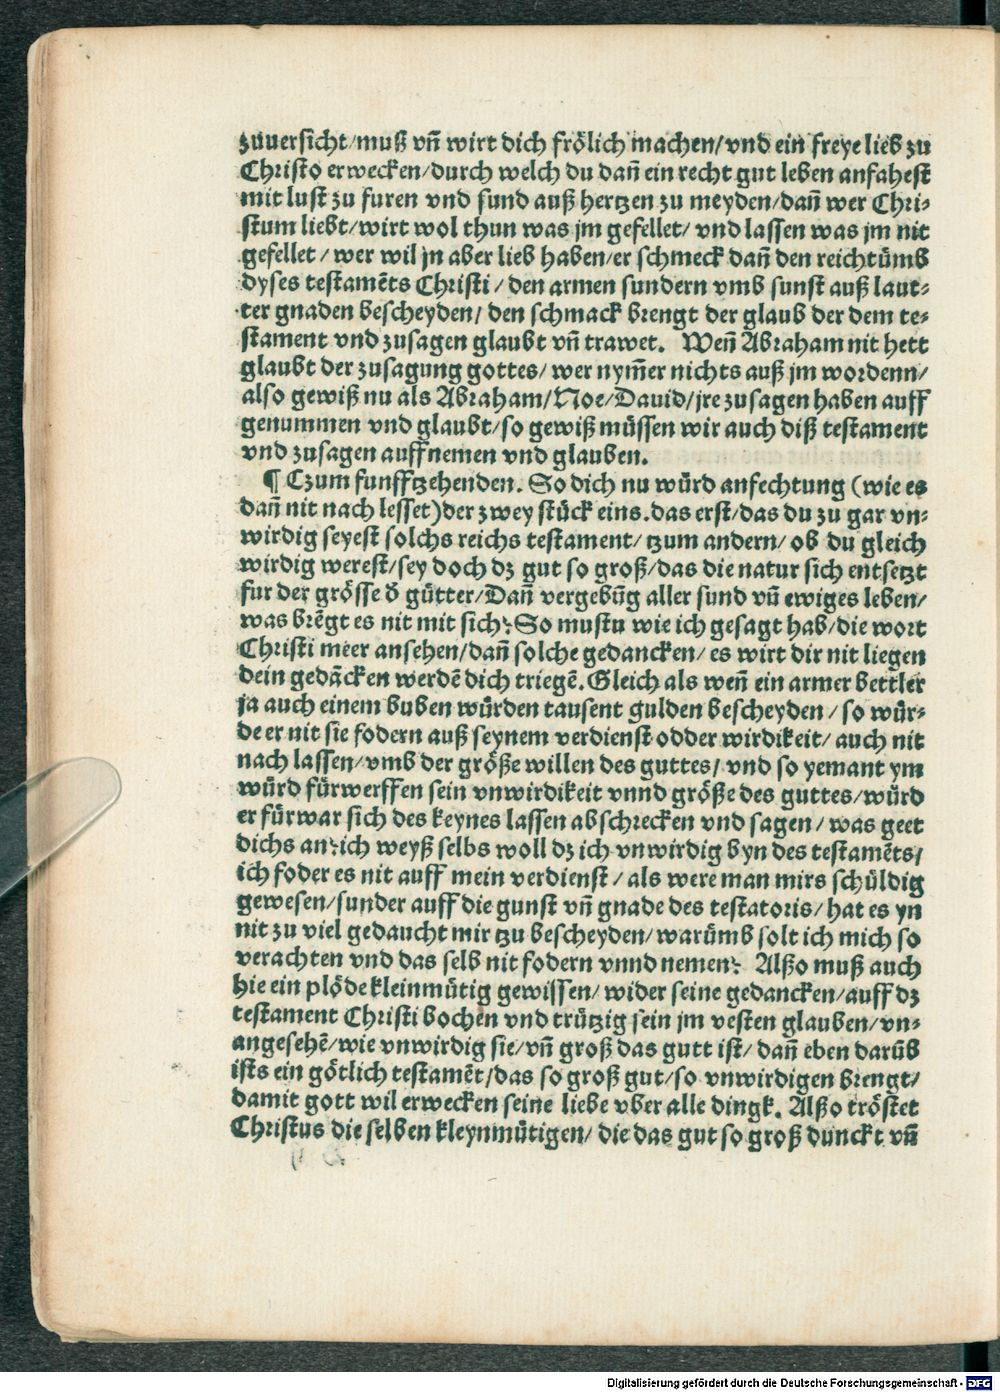 zůuersicht/muß vñ wirt dich frölich machen/vnd ein freye lieb zu
Christo erwecken/durch welch du dañ ein recht gut leben anfahest
mit lust zu furen vnd sund auß hertzen zu meyden/dañ wer Chri-
stum liebt/wirt wol thun was jm gefellet/ vnd lassen was jm nit
gefellet/ wer wil jn aber lieb haben/er schmeck dañ den reichtümb
dyses testamẽts Christi/ den armen sundern vmb sunst auß laut-
ter gnaden bescheyden/ den schmack brengt der glaub der dem te-
stament vnd zusagen glaubt vñ trawet. Weñ Abraham nit hett
glaubt der zusagung gottes/ wer nym̃er nichts auß jm wordenn/
also gewiß nu als Abraham/Noe/Dauid/jre zusagen haben auff
genummen vnd glaubt/so gewiß müssen wir auch diß testament
vnd zusagen auffnemen vnd glauben.
¶ Czum funfftzehenden. So dich nu würd anfechtung (wie es
dañ nit nach lesset) der zwey stück eins. das erst/das du zu gar vn-
wirdig seyest solchs reichs testament/ tzum andern/ ob du gleich
wirdig werest/sey doch dz gut so groß/das die natur sich entsetzt
fur der grösse ď gütter/Dañ vergebũg aller sund vñ ewiges leben/
was brẽgt es nit mit sich? So mustu wie ich gesagt hab/die wort
Christi meer ansehen/dañ solche gedancken/ es wirt dir nit liegen
dein gedãcken werdẽ dich triegẽ. Gleich als weñ ein armer bettler
ja auch einem buben würden tausent gulden bescheyden/ so wür-
de er nit sie fodern auß seynem verdienst odder wirdikeit/ auch nit
nach lassen/vmb der größe willen des guttes/ vnd so yemant ym
würd fürwerffen sein vnwirdikeit vnnd größe des guttes/würd
er fürwar sich des keynes lassen abschrecken vnd sagen/ was geet
dichs an? ich weyß selbs woll dz ich vnwirdig byn des testamẽts/
ich foder es nit auff mein verdienst/ als were man mirs schüldig
gewesen/sunder auff die gunst vñ gnade des testatoris/ hat es yn
nit zu viel gedaucht mir tzu bescheyden/warümb solt ich mich so
verachten vnd das selb nit fodern vnnd nemen? Alßo muß auch
hie ein plöde kleinmütig gewissen/ wider seine gedancken/auff dz
testament Christi bochen vnd trützig sein jm vesten glauben/vn-
angesehẽ/wie vnwirdig sie/vñ groß das gutt ist/ dañ eben darũb
ists ein götlich testamẽt/das so groß gut/so vnwirdigen brengt/
damit gott wil erwecken seine liebe vber alle dingk. Alßo tröstet
Christus die selben kleynmütigen/ die das gut so groß dunckt vñ
Digitalisierung gefördert durch die Deutsche Forschungsgemeinschaft - DFG